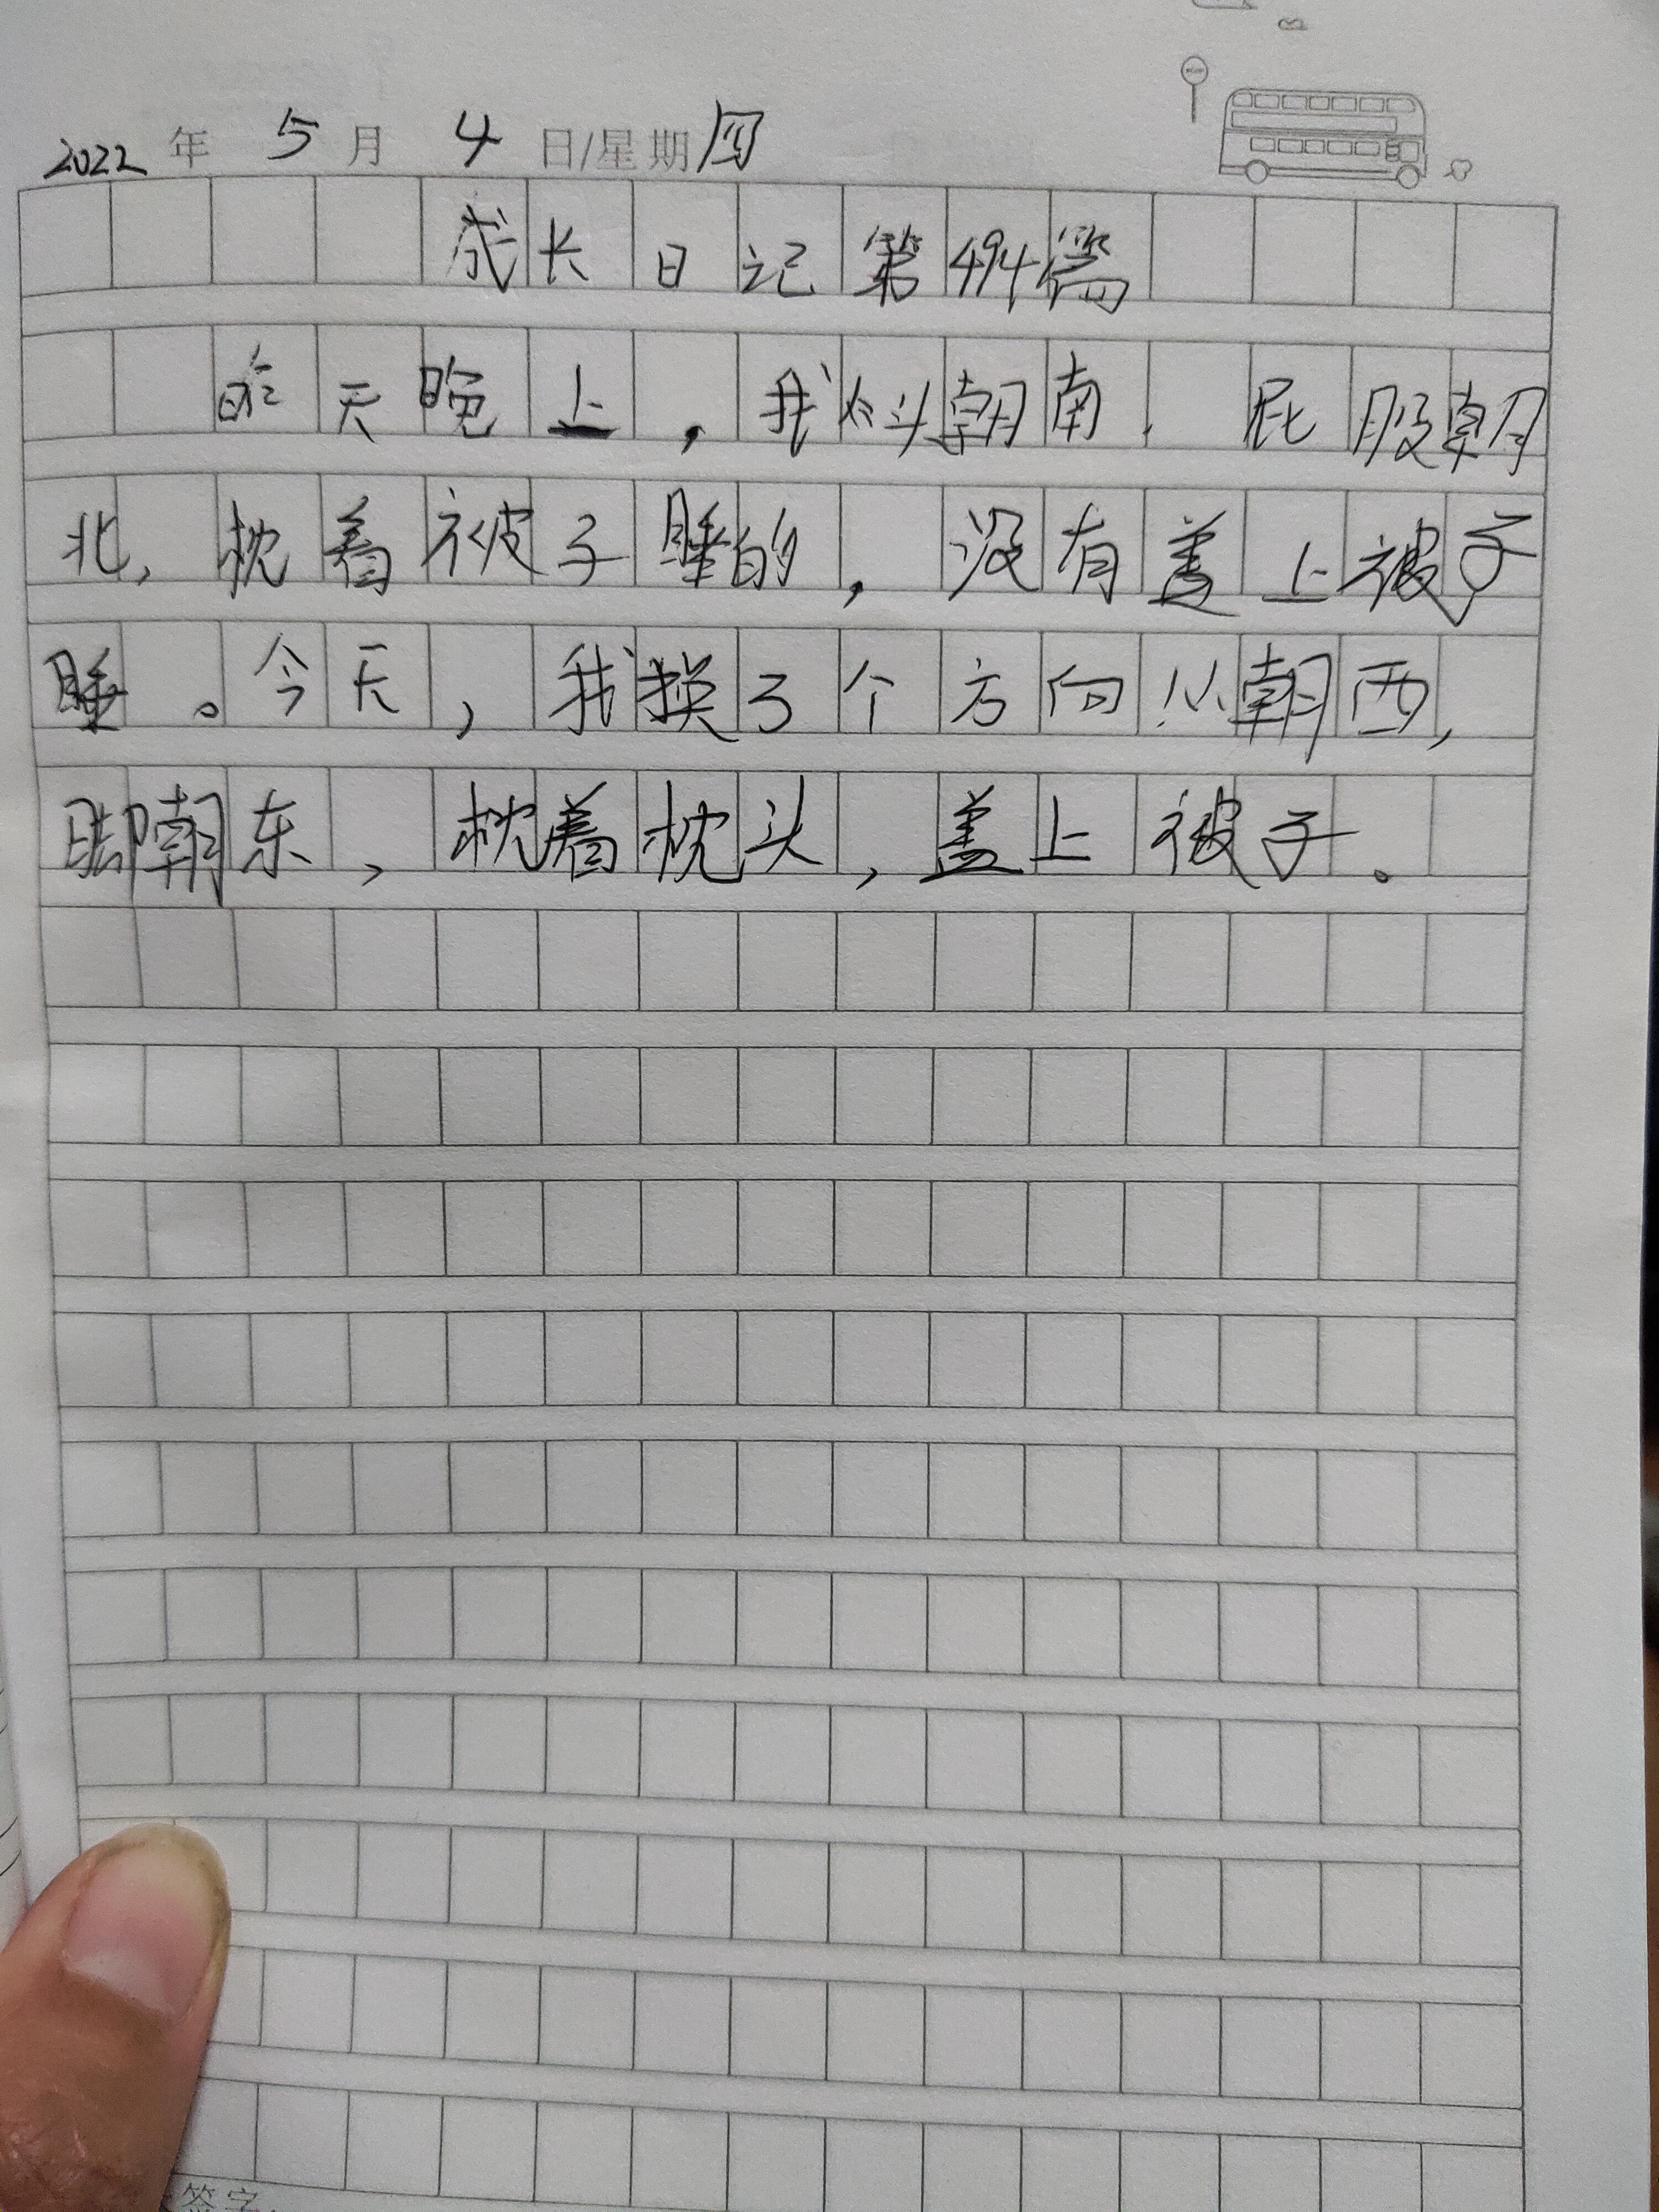 2022年5月4日/星期四
成长日记第494篇
昨天晚上，我头朝南，屁股朝
北，枕着被子睡的，没有盖上被子
睡。今天，我换了个方向头朝西，
脚朝东，枕着枕头，盖上被子。
签字